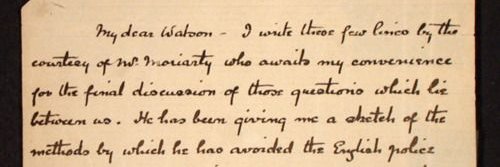 My dear Watson – I write these few lines by the
courtesy of Mr. Moriarty who awaits my convenience
for the final discussion of those questions which lie
between us. He has been giving me a sketch of the
methods by which he has avoided the English police